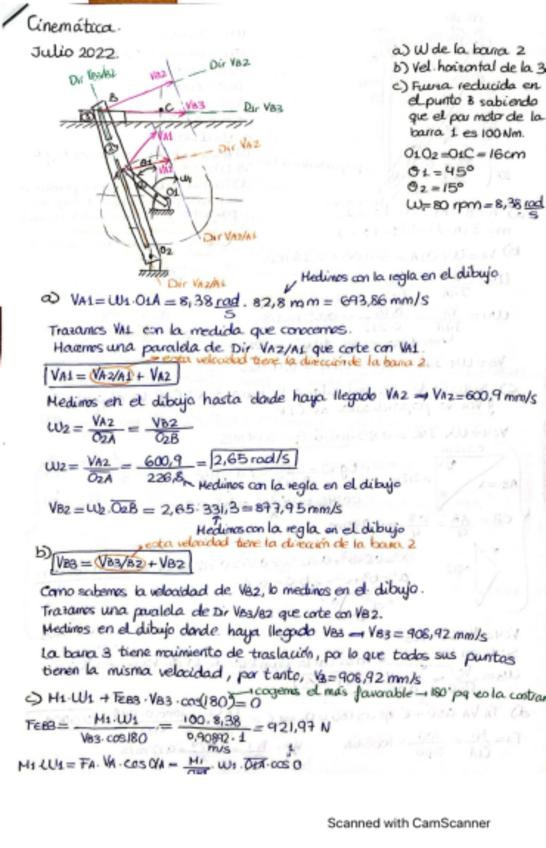 Cinemática.
Julio 2022.
a) W de la barra 2
b) Vel. horizontal de la 3
c) Fuerza reducida en
el punto B sabiendo
que el par motor de la
barra 1 es 100Nm.
O1O2=O1C=16cm
θ1=45°
θ2=15°
W=80 rpm=8,38 rad/s
Dir VB3/B2
VB2
Dir VB2
B
C
VB3
Dir VB3
VA1
Dir VA2
VA2
O1
Dir VA2/A1
O2
Dir VA2/A1
Medimos con la regla en el dibujo
a) VA1=W1·O1A=8,38 rad/s · 82,8 mm = 693,86 mm/s
Trazamos VA1 con la medida que conocemos.
Hacemos una paralela de Dir VA2/A1 que corte con VA1.
esta velocidad tiene la dirección de la barra 2.
VA1=VA2/A1+VA2
Medimos en el dibujo hasta donde haya llegado VA2 → VA2=600,9 mm/s
W2=VA2/O2A=VB2/O2B
W2=VA2/O2A=600,9/226,8=2,65 rad/s
Medimos con la regla en el dibujo
VB2=W2·O2B=2,65·331,3=877,95mm/s
Medimos con la regla en el dibujo
esta velocidad tiene la dirección de la barra 2
b) VB3=VB3/B2+VB2
Como sabemos la velocidad de VB2, lo medimos en el dibujo.
Trazamos una paralela de Dir VB3/B2 que corte con VB2.
Medimos en el dibujo donde haya llegado VB3 → VB3=908,92 mm/s
La barra 3 tiene movimiento de traslación, por lo que todos sus puntos
tienen la misma velocidad, por tanto, V3=908,92 mm/s
cogemos el más favorable → 180° pq es la contrar
c) M1·W1+FEB3·VB3·cos(180)=0
FEB3=M1·W1/VB3·cos180=100·8,38/0,90892·1 m/s=921,97 N
M1·W1=FA·VA·cosαA=M1/O1A·W1·O1A·cos0
Scanned with CamScanner